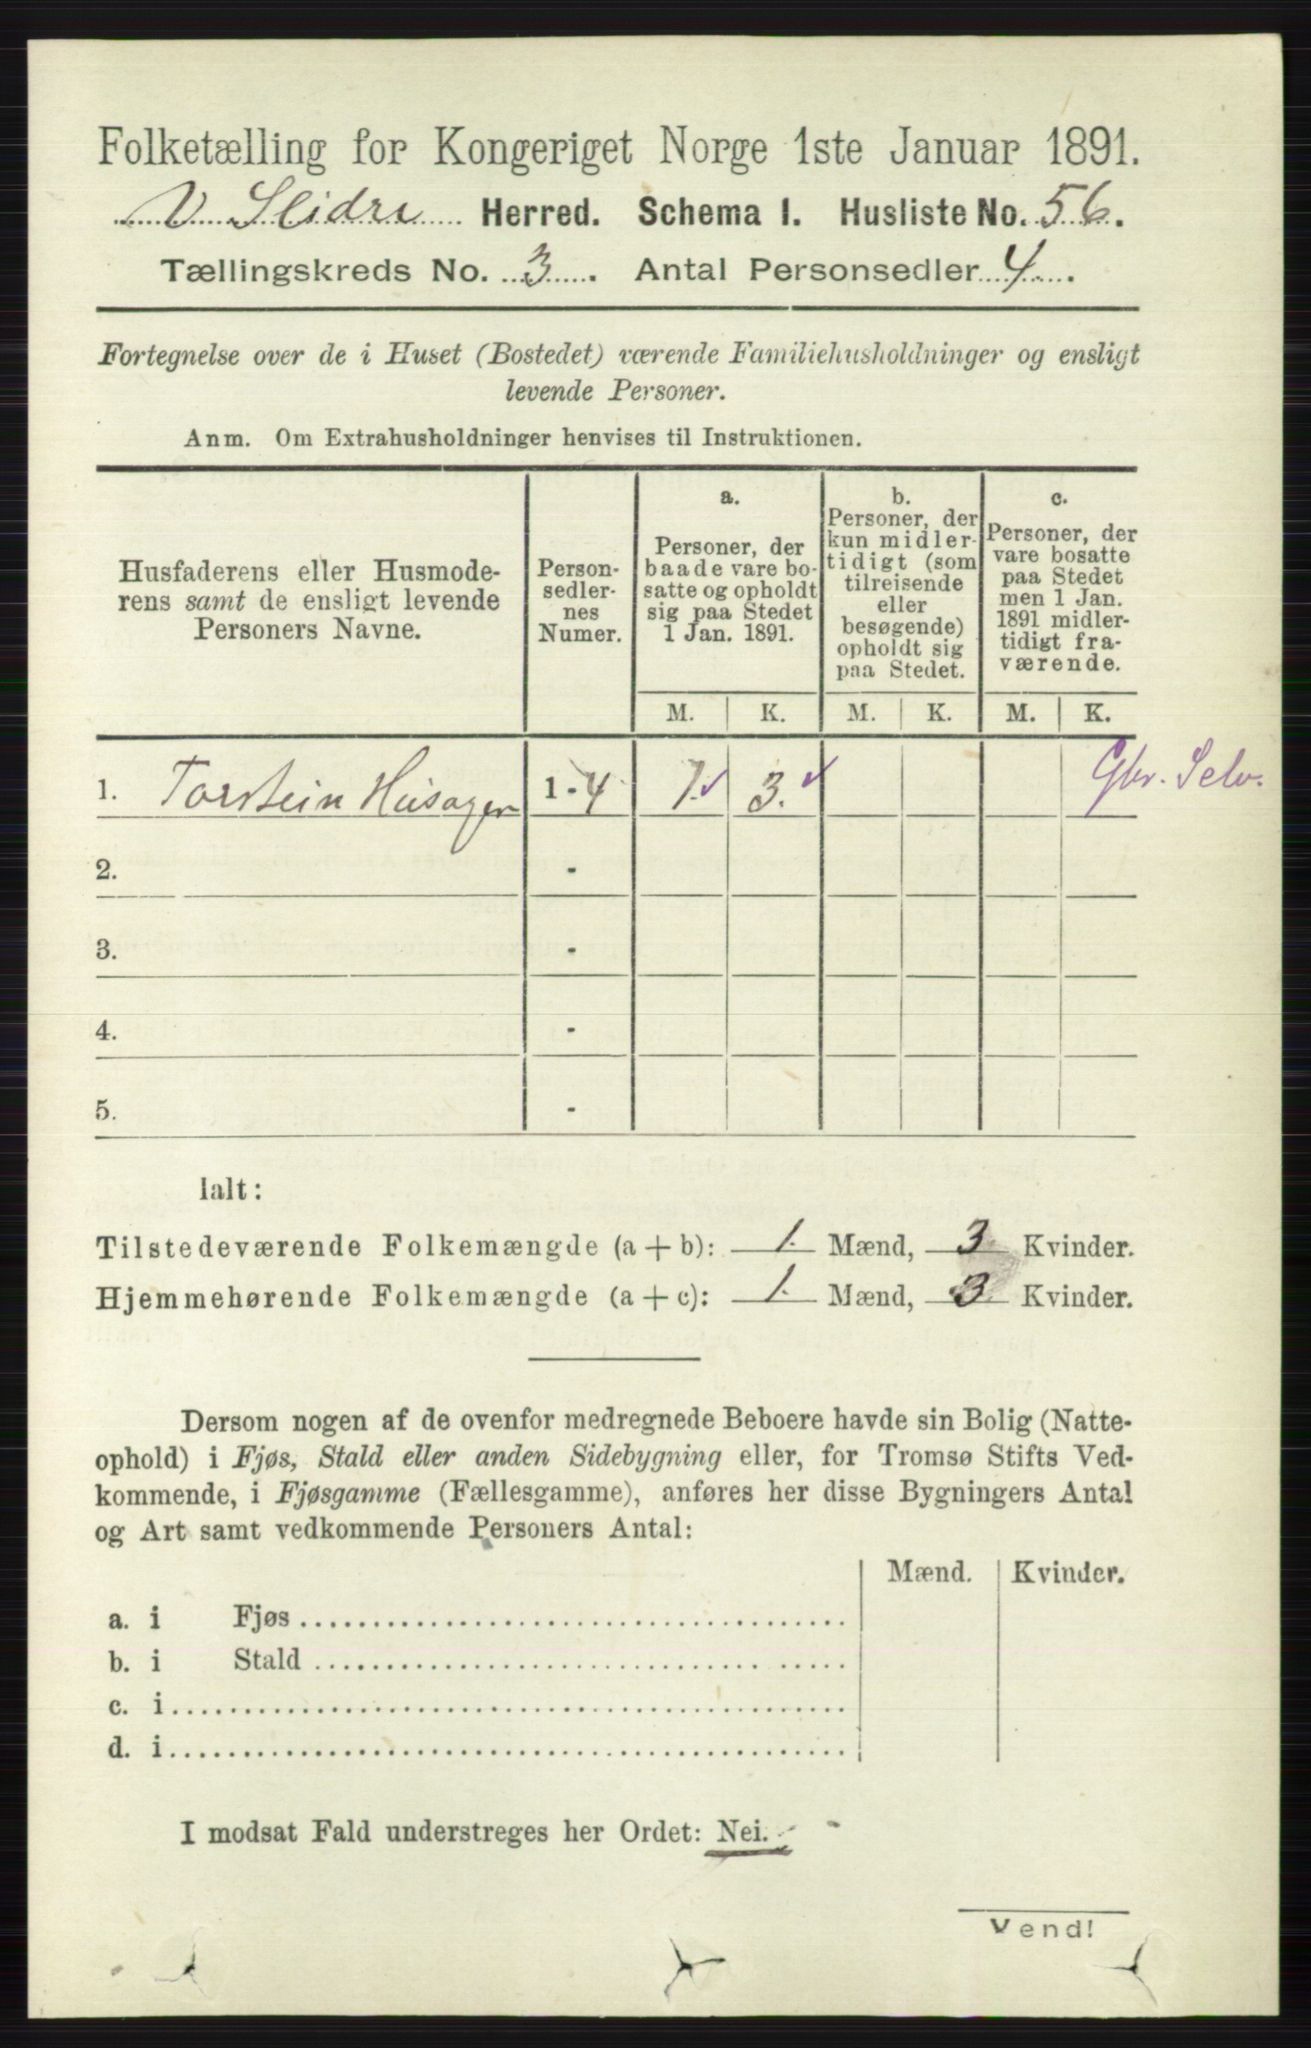 Folketælling for Kongeriget Norge 1ste Januar 1891.
V Slidre Herred. Schema 1. Husliste No. 56.
Tællingskreds No. 3. Antal Personsedler 4.
Fortegnelse over de i Huset (Bostedet) værende Familiehusholdninger og ensligt
levende Personer.
Anm. Om Extrahusholdninger henvises til Instruktionen.
Husfaderens eller Husmode-
rens samt de ensligt levende
Personers Navne.
Person-
sedler-
nes
Numer.
a.
Personer, der
baade vare bo-
satte og opholdt
sig paa Stedet
1 Jan. 1891.
b.
Personer, der
kun midler-
tidigt (som
tilreisende
eller
besøgende)
opholdt sig
paa Stedet.
c.
Personer, der
vare bosatte
paa Stedet
men 1 Jan.
1891 midler-
tidigt fra-
værende.
M. K. M. K. M. K.
1. Torstein Husager 1 - 4 1. ✓ 3. ✓ Gbr. Selv.
2. -
3. -
4. -
5. -
Ialt:
Tilstedeværende Folkemængde (a + b): 1. Mænd, 3 Kvinder.
Hjemmehørende Folkemængde (a + c): 1. Mænd, 3 Kvinder.
Dersom nogen af de ovenfor medregnede Beboere havde sin Bolig (Natte-
ophold) i Fjøs, Stald eller anden Sidebygning eller, for Tromsø Stifts Ved-
kommende, i Fjøsgamme (Fællesgamme), anføres her disse Bygningers Antal
og Art samt vedkommende Personers Antal:
Mænd. Kvinder.
a. i Fjøs
b. i Stald
c. i
d. i
I modsat Fald understreges her Ordet: Nei.
Vend!